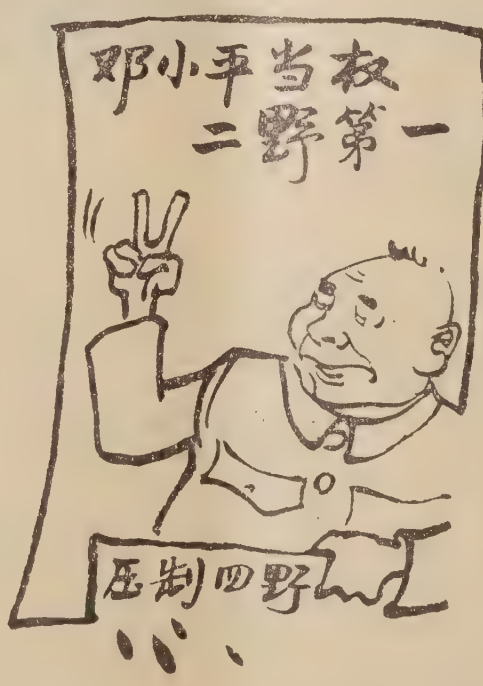 邓小平当权
二野第一
压制四野